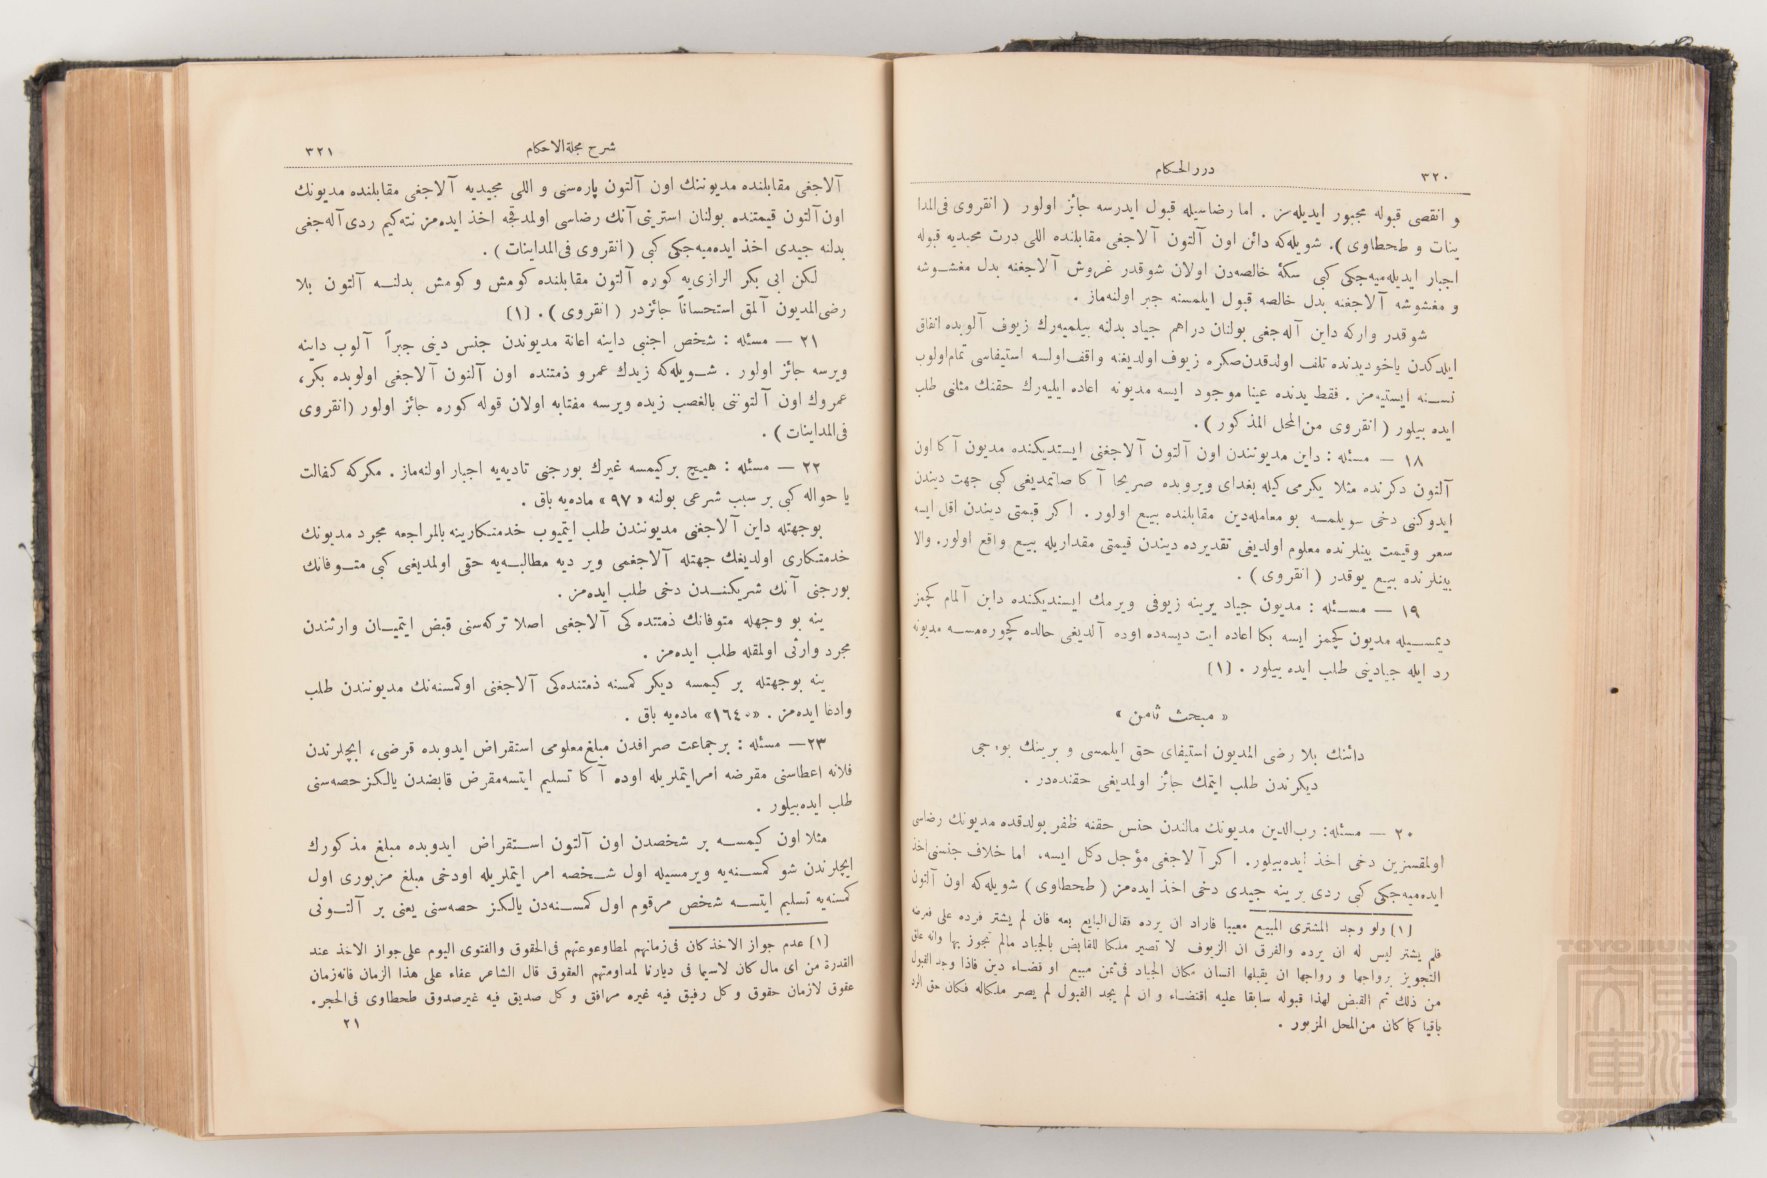 ٣٢٠
دررالحكام
و انقصی قبوله مجبور ایدیله‌مز . اما رضاسیله قبول ایدرسه جائز اولور ( انقروی فی‌المدا
ینات و طحطاوی ). شویله‌كه دائن اون آلتون آلاجغی مقابلنده اللی درت مجیدیه قبوله
اجبار ایدیله‌میه‌جكی كبی سكهٔ خالصه‌دن اولان شوقدر غروش آلاجغنه بدل مغشوشه
و مغشوشه آلاجغنه بدل خالصه قبول ایلمسنه جبر اولنه‌ماز .
شوقدر واركه داین آله‌جغی بولنان دراهم جیاد بدلنه بیلمیه‌رك زیوف آلوبده انفاق
ایلدكدن یاخود یدنده تلف اولدقدن‌صكره زیوف اولدیغنه واقف‌اولسه استیفاسی تمام‌اولوب
نسنه ایستیه‌مز . فقط یدنده عیناً موجود ایسه مدیونه اعاده ایلیه‌رك حقنك مثلنی طلب
ایده بیلور ( انقروی من‌المحل المذكور ).
١٨ — مسئله : داین مدیونندن اون آلتون آلاجغنی ایستدیكنده مدیون آكا اون
آلتون دكرنده مثلا یكرمی كیله بغدای ویروبده صریحا آكا صاتمدیغی كبی جهت دیندن
ایدوكنی دخی سویلمسه بو معامله‌دین مقابلنده بیع اولور . اكر قیمتی دیندن اقل ایسه
سعر وقیمت بینلرنده معلوم اولدیغی تقدیرده دیندن قیمتی مقداریله بیع واقع اولور. والا
بینلرنده بیع یوقدر ( انقروی ) .
١٩ — مسئله : مدیون جیاد یرینه زیوفی ویرمك ایستدیكنده داین آلمام كچمز
دیمسیله مدیون كچمز ایسه بكا اعاده ایت دیسه‌ده اوده آلدیغی حالده كچوره‌مسه مدیونه
رد ایله جیادینی طلب ایده بیلور . (١)
« مبحث ثامن »
دائنك بلا رضی المدیون استیفای حق ایلمسی و برینك بورجی
دیكرندن طلب ایتمك جائز اولمدیغی حقنده‌در .
٢٠ — مسئله: رب‌الدین مدیونك مالندن جنس حقنه ظفر بولدقده مدیونك رضاسی
اولمقسزین دخی اخذ ایده‌بیلور. اكر آلاجغی مؤجل دكل ایسه. اما خلاف جنسنی اخذ
ایده‌میه‌جكی كبی ردی برینه جیدی دخی اخذ ایده‌مز ( طحطاوی ) شویله‌كه اون آلتون
(١) ولو وجد المشتری المبیع معیبا فاراد ان یرده فقال‌البایع بعه فان لم یشتر فرده علی فعرضه
فلم یشتر لیس له ان یرده والفرق ان الزیوف لا تصیر ملكا للقابض بالجیاد مالم تجوز بها وانه علق
التجویز برواجها و رواجها ان یقبلها انسان مكان الجیاد فی‌ثمن مبیع او قضاء دین فاذا وجد القبول
من ذلك تم القبض لهذا قبوله سابقا علیه اقتضاء و ان لم یجد القبول لم یصر ملكاله فكان حق الرد
باقیا كما كان من‌المحل المزبور .
شرح مجلةالاحكام
٣٢١
آلاجغی مقابلنده مدیوننك اون آلتون پاره‌سنی و اللی مجیدیه آلاجغی مقابلنده مدیونك
اون‌آلتون قیمتنده بولنان استرینی آنك رضاسی اولمدقجه اخذ ایده‌مز نته‌كیم ردی آله‌جغی
بدلنه جیدی اخذ ایده‌میه‌جكی كبی ( انقروی فی‌المداینات ) .
لكن ابی بكر الرازی‌یه كوره آلتون مقابلنده كومش و كومش بدلنه آلتون بلا
رضی‌المدیون آلمق استحساناً جائزدر ( انقروی ) . (١)
٢١ — مسئله : شخص اجنبی داینه اعانة مدیوندن جنس دینی جبراً آلوب داینه
ویرسه جائز اولور . شویله‌كه زیدك عمرو ذمتنده اون آلتون آلاجغی اولوبده بكر،
عمروك اون آلتوننی بالغصب زیده ویرسه مفتابه اولان قوله كوره جائز اولور (انقروی
فی‌المداینات ) .
٢٢ — مسئله : هیچ بركیمسه غیرك بورجنی تادیه‌یه اجبار اولنه‌ماز . مكركه كفالت
یا حواله كبی بر سبب شرعی بولنه «٩٧» ماده‌یه باق .
بوجهتله داین آلاجغنی مدیونندن طلب ایتمیوب خدمتكارینه بالمراجعه مجرد مدیونك
خدمتكاری اولدیغك جهتله آلاجغمی ویر دیه مطالبه‌یه حقی اولمدیغی كبی متوفانك
بورجنی آنك شریكندن دخی طلب ایده‌مز .
ینه بو وجهله متوفانك ذمتنده‌كی آلاجغی اصلا تركه‌سنی قبض ایتمیان وارثندن
مجرد وارثی اولمقله طلب ایده‌مز .
ینه بوجهتله بر كیمسه دیكر كمسنه ذمتنده‌كی آلاجغنی اوكمسنه‌نك مدیونندن طلب
وادعا ایده‌مز . «١٦٤٠» ماده‌یه باق .
٢٣— مسئله : برجماعت صرافدن مبلغ‌معلومی استقراض ایدوبده قرضی، ایچلرندن
فلانه اعطاسنی مقرضه امرایتملریله اوده آكا تسلیم ایتسه‌مقرض قابضدن یالكزحصه‌سنی
طلب ایده‌بیلور .
مثلا اون كیمسه بر شخصدن اون آلتون استقراض ایدوبده مبلغ مذكورك
ایچلرندن شو كمسنه‌یه ویرمسیله اول شخصه امر ایتملریله اودخی مبلغ مزبوری اول
كمسنه‌یه تسلیم ایتسه شخص مرقوم اول كمسنه‌دن یالكز حصه‌سنی یعنی بر آلتونی
(١) عدم جواز الاخذكان فی‌زمانهم لمطاوعوعتهم فی‌الحقوق والفتوی الیوم علی‌جواز الاخذ عند
القدرة من ای مال كان لاسیما فی دیارنا لمداومتهم العقوق قال الشاعر عفاء علی هذا الزمان فانه‌زمان
عقوق لازمان حقوق و كل رفیق فیه غیره مرافق و كل صدیق فیه غیرصدوق طحطاوی فی‌الحجر.
٢١
TOYO BUNKO